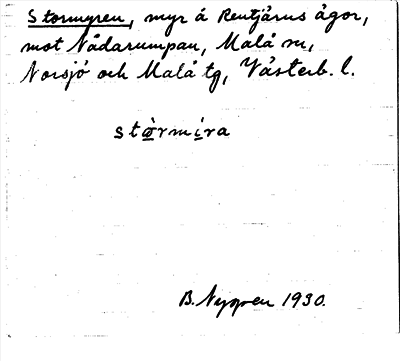 Stormyren, myr å Rentjärns ägor,
mot Nådarumpan, Malå sn,
Norsjö och Malå tg, Västerb. l.
stòrmíra
B. Nygren 1930.